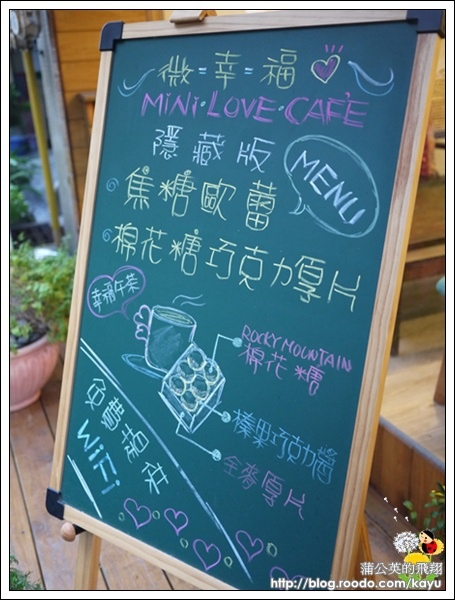 微=幸=福
MiNi·LOVE·CAFE
隱藏版
MENU
焦糖歐蕾
棉花糖巧克力厚片
幸福午茶
ROCKY MOUNTAIN
棉花糖
榛果巧克力醬
全麥厚片
免費提供
WiFi
蒲公英的飛翔
http://blog.roodo.com/kayu